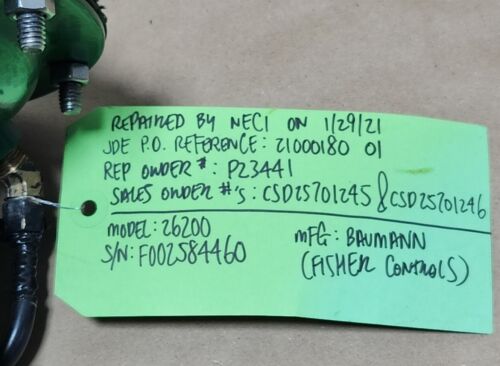 REPAIRED BY NECI ON 1/29/21
JDE P.O. REFERENCE: 21000180 01
REP ORDER #: P23441
SALES ORDER #'S: CSD25701245 & CSD25701246
MODEL: 26200
S/N: F002584460
MFG: BAUMANN
(FISHER CONTROLS)